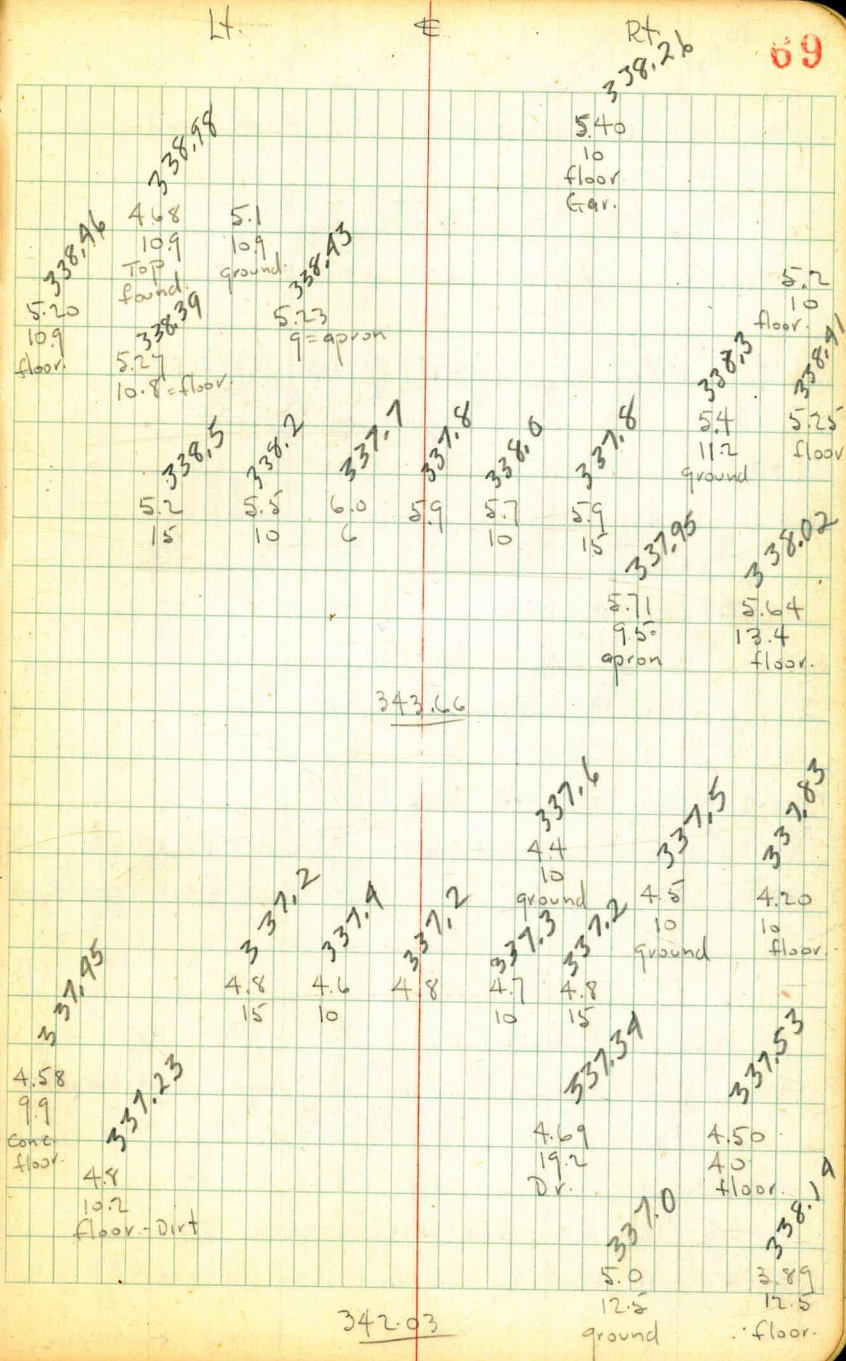 Lt. ℄ Rt.
69
338.26
5.40
10
floor
Gar.
338.98
4.68
10.9
Top
found.
5.1
10.9
ground.
338.46
5.20
10.9
floor.
338.39
5.27
10.8 = floor.
338.43
5.23
9 = apron
5.2
10
floor.
338.3
5.4
11.2
ground
338.41
5.25
floor
338.5
5.2
15
338.2
5.5
10
337.7
6.0
6
337.8
5.9
338.0
5.7
10
337.8
5.9
15
337.95
5.71
9.5 =
apron
338.02
5.64
13.4
floor.
343.66
337.6
4.4
10
ground
337.5
4.5
10
ground
337.83
4.20
10
floor.
337.2
4.8
15
337.4
4.6
10
337.2
4.8
337.3
4.7
10
337.2
4.8
15
337.95
4.58
9.9
conc
floor.
337.23
4.8
10.2
floor - Dirt
337.34
4.69
19.2
Dr.
337.53
4.50
40
floor.
337.0
5.0
12.5
ground
338.14
3.89
12.5
floor.
342.03